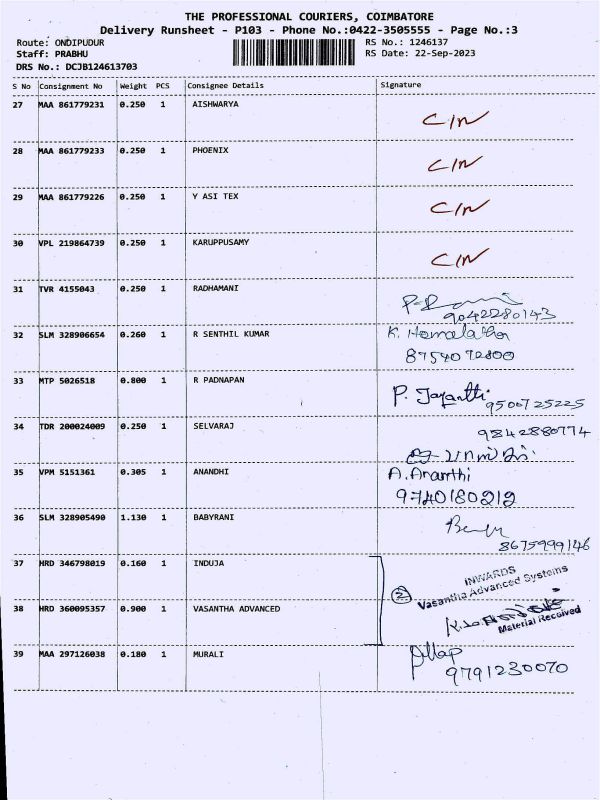 THE PROFESSIONAL COURIERS, COIMBATORE
Delivery Runsheet - P103 - Phone No.:0422-3505555 - Page No.:3
Route: ONDIPUDUR RS No.: 1246137
Staff: PRABHU RS Date: 22-Sep-2023
DRS No.: DCJB124613703
S No Consignment No Weight PCS Consignee Details Signature
27 MAA 861779231 0.250 1 AISHWARYA C/N
28 MAA 861779233 0.250 1 PHOENIX C/N
29 MAA 861779226 0.250 1 Y ASI TEX C/N
30 VPL 219864739 0.250 1 KARUPPUSAMY C/N
31 TVR 4155043 0.250 1 RADHAMANI
9042280143
32 SLM 328906654 0.260 1 R SENTHIL KUMAR K. Hemalatha
8754072800
33 MTP 5026518 0.800 1 R PADNAPAN P. Jayanthi
9500725225
34 TDR 200024009 0.250 1 SELVARAJ 9842880774
35 VPM 5151361 0.305 1 ANANDHI A. Ananthi
9740180212
36 SLM 328905490 1.130 1 BABYRANI
8675999146
37 HRD 346798019 0.160 1 INDUJA INWARDS
2 Vasantha Advanced Systems
38 HRD 360095357 0.900 1 VASANTHA ADVANCED
Material Received
39 MAA 297126038 0.180 1 MURALI
9791230070